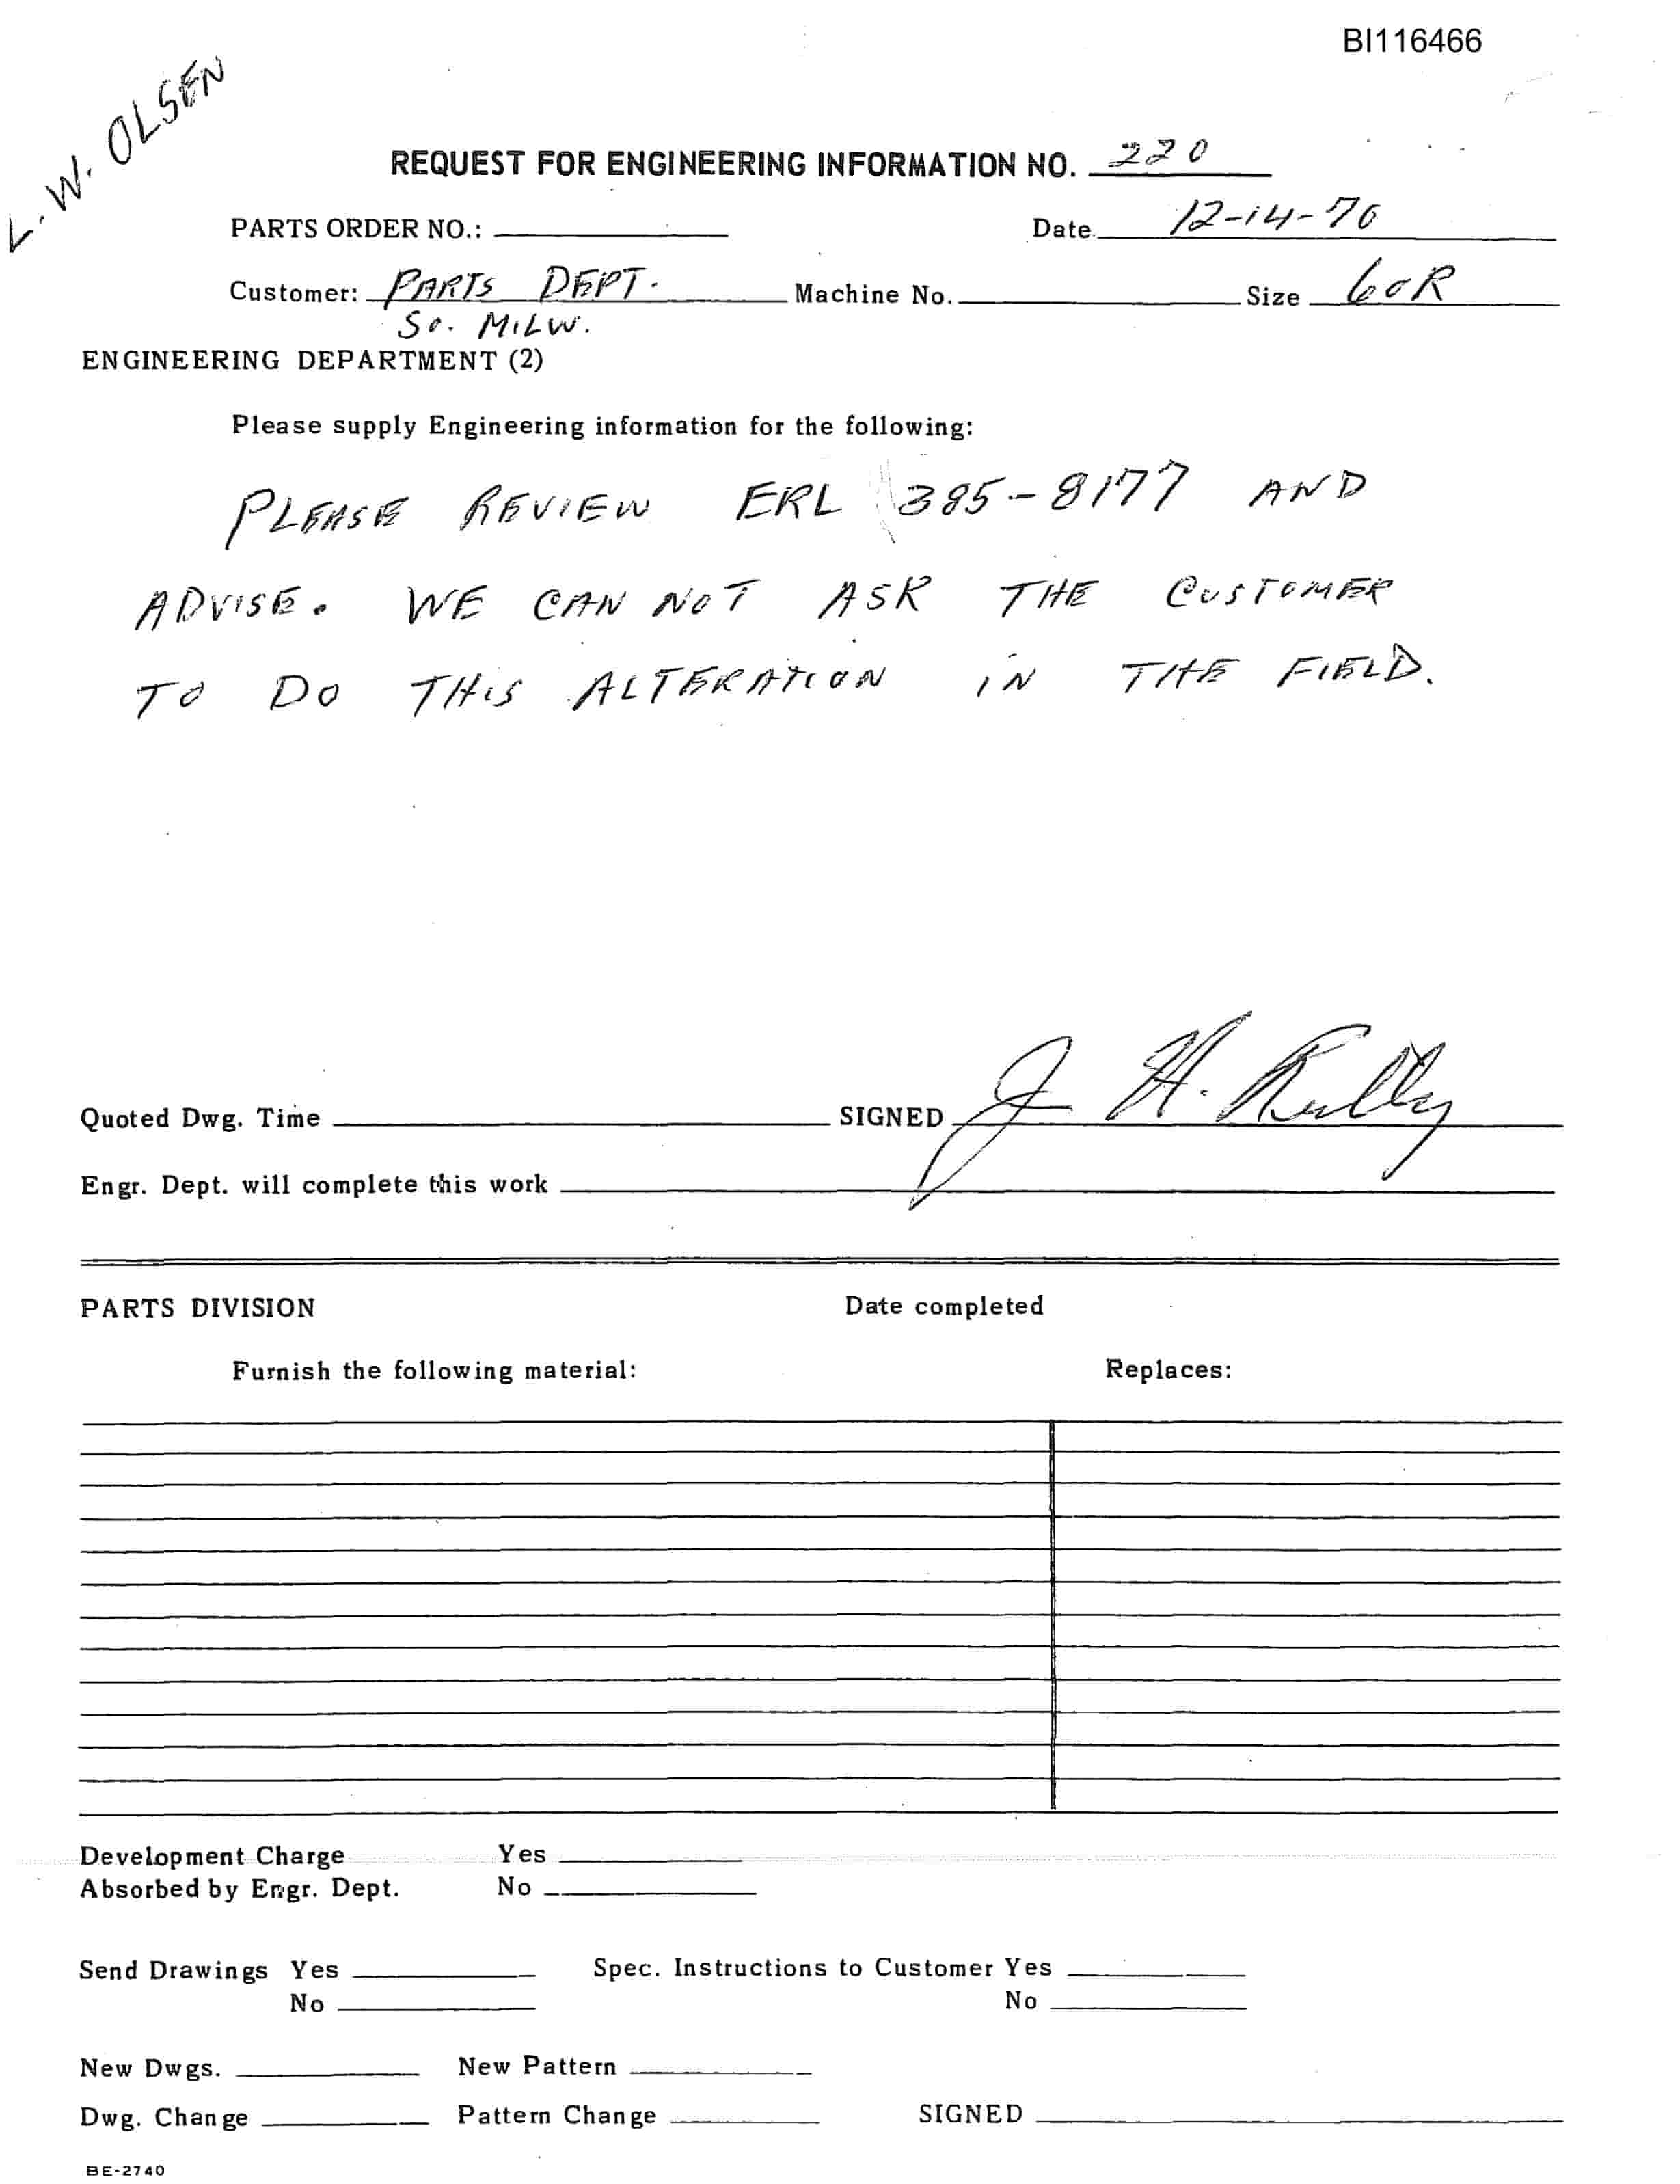 BI116466
L. W. OLSEN
REQUEST FOR ENGINEERING INFORMATION NO. 220
PARTS ORDER NO.: Date 12-14-70
Customer: PARTS DEPT. Machine No. Size 60R
So. MILW.
ENGINEERING DEPARTMENT (2)
Please supply Engineering information for the following:
PLEASE REVIEW ERL 385-8177 AND
ADVISE. WE CAN NOT ASK THE CUSTOMER
TO DO THIS ALTERATION IN THE FIELD.
Quoted Dwg. Time SIGNED J H.
Engr. Dept. will complete this work
PARTS DIVISION Date completed
Furnish the following material: Replaces:
Development Charge Yes
Absorbed by Engr. Dept. No
Send Drawings Yes Spec. Instructions to Customer Yes
No No
New Dwgs. New Pattern
Dwg. Change Pattern Change SIGNED
BE-2740